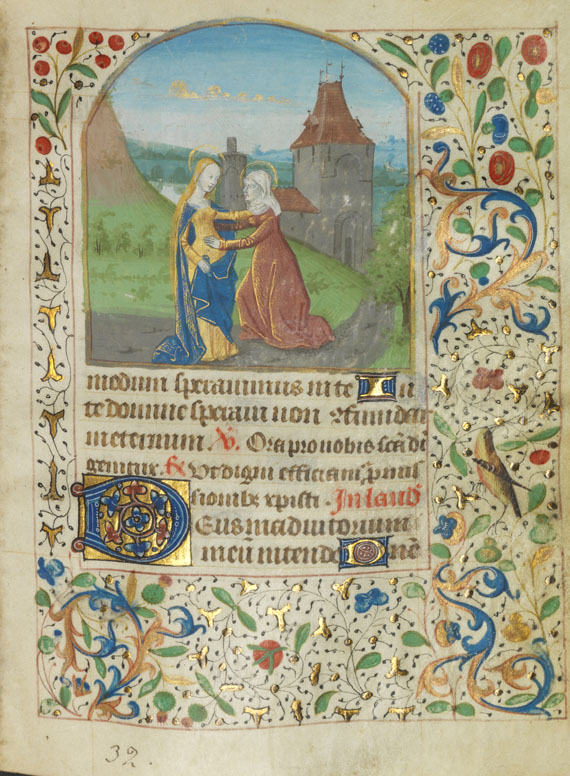 modum speravimus in te In
te domine speravi non confundar
in eternum V. Ora pro nobis scā dei
genitrix R Ut digni efficiam pmis
sionibꝫ xpisti. In laud
Deus in adiutorium
meū intende Dne
32.